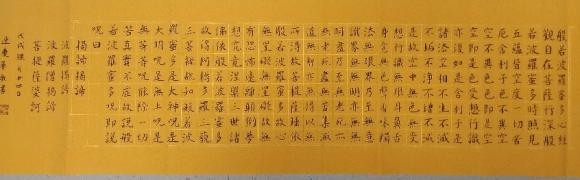 般若波羅蜜多心經
觀自在菩薩行深般
若波羅蜜多時照見
五蘊皆空度一切苦
厄舍利子色不異空
空不異色色即是空
空即是色受想行識
亦復如是舍利子是
諸法空相不生不滅
不垢不淨不增不減
是故空中無色無受
想行識無眼耳鼻舌
身意無色聲香味觸
法無眼界乃至無意
識界無無明亦無無
明盡乃至無老死亦
無老死盡無苦集滅
道無智亦無得以無
所得故菩提薩埵依
般若波羅蜜多故心
無罣礙無罣礙故無
有恐怖遠離顛倒夢
想究竟涅槃三世諸
佛依般若波羅蜜多
故得阿耨多羅三藐
三菩提故知般若波
羅蜜多是大神咒是
大明咒是無上咒是
無等等咒能除一切
苦真實不虛故說般
若波羅蜜多咒即說
咒曰
揭諦揭諦
波羅揭諦
波羅僧揭諦
菩提薩婆訶
戊戌